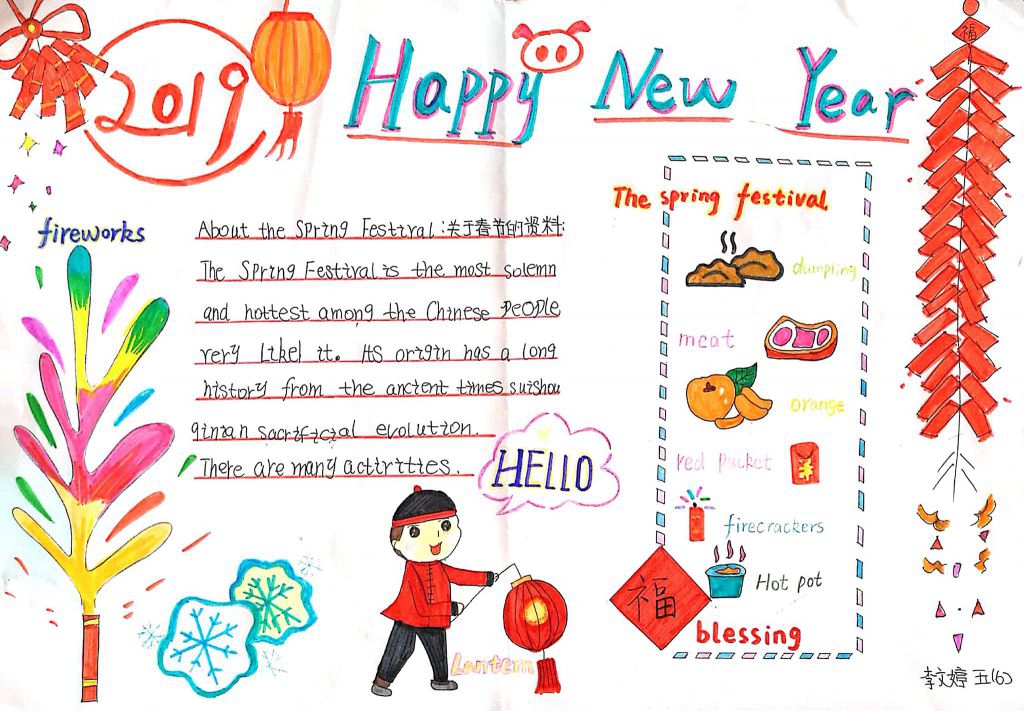 2019
Happy New Year
福
fireworks
About the Spring Festival:关于春节的资料:
The Spring Festival is the most solemn
and hottest among the Chinese People
very Likel it. Its origin has a long
history from the ancient times suishou
qinian sacrificial evolution.
There are many activities.
HELLO
Lantern
The spring festival
dumpling
meat
orange
red packet
firecrackers
Hot pot
福
blessing
李文婷 五(6)